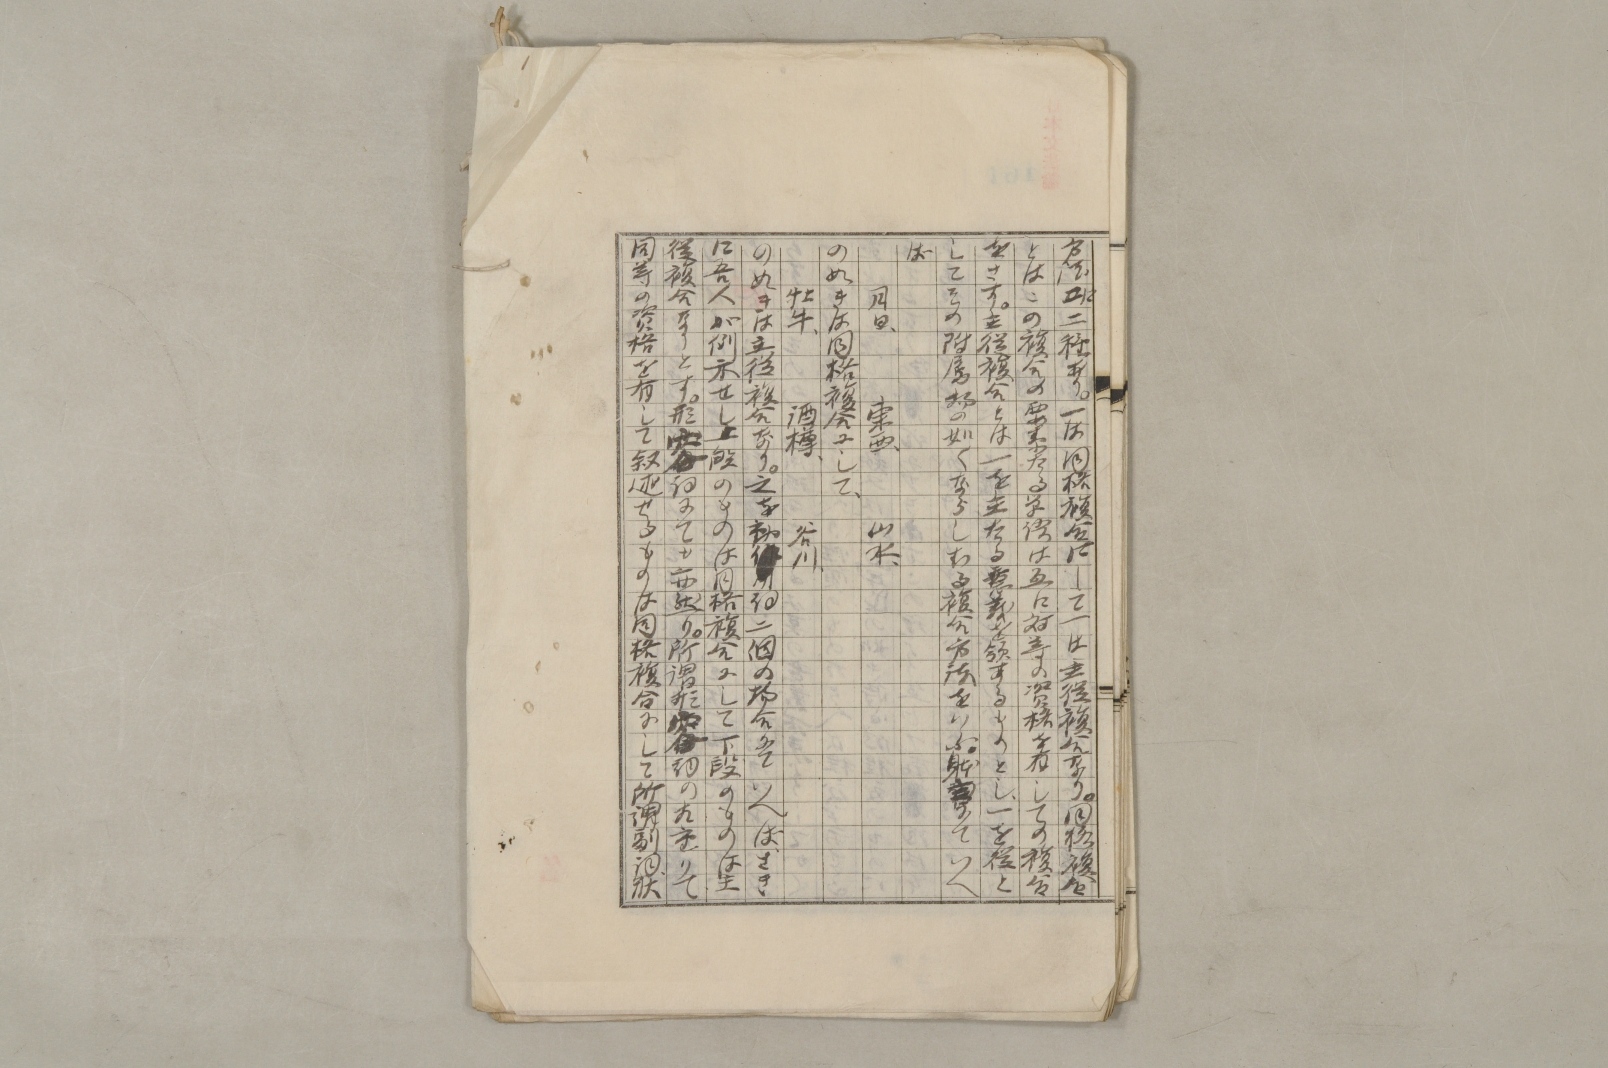 方法に二種あり。一は同格複合にして一は主従複合なり。同格複合
とはこの複合の要素たる単語は互に対等の資格を有しての複合
をさす。主従複合とは一を主たる意義を領するものとし、一を従と
してその附属物の如くならしむる複合方法をいふ。体言にていへ
ば
月日、 東西、 山水、
の如きは同格複合にして、
牡牛、 酒樽、 谷川、
の如きは主従複合なり。之を 詞二個の場合にていへば、さき
に吾人が例示せし上段のものは同格複合にして下段のものは主
従複合なりとす。形容詞にても亦然り。所謂形容詞の 
同等の資格を有して叙述せるものは同格複合にして所謂副詞状